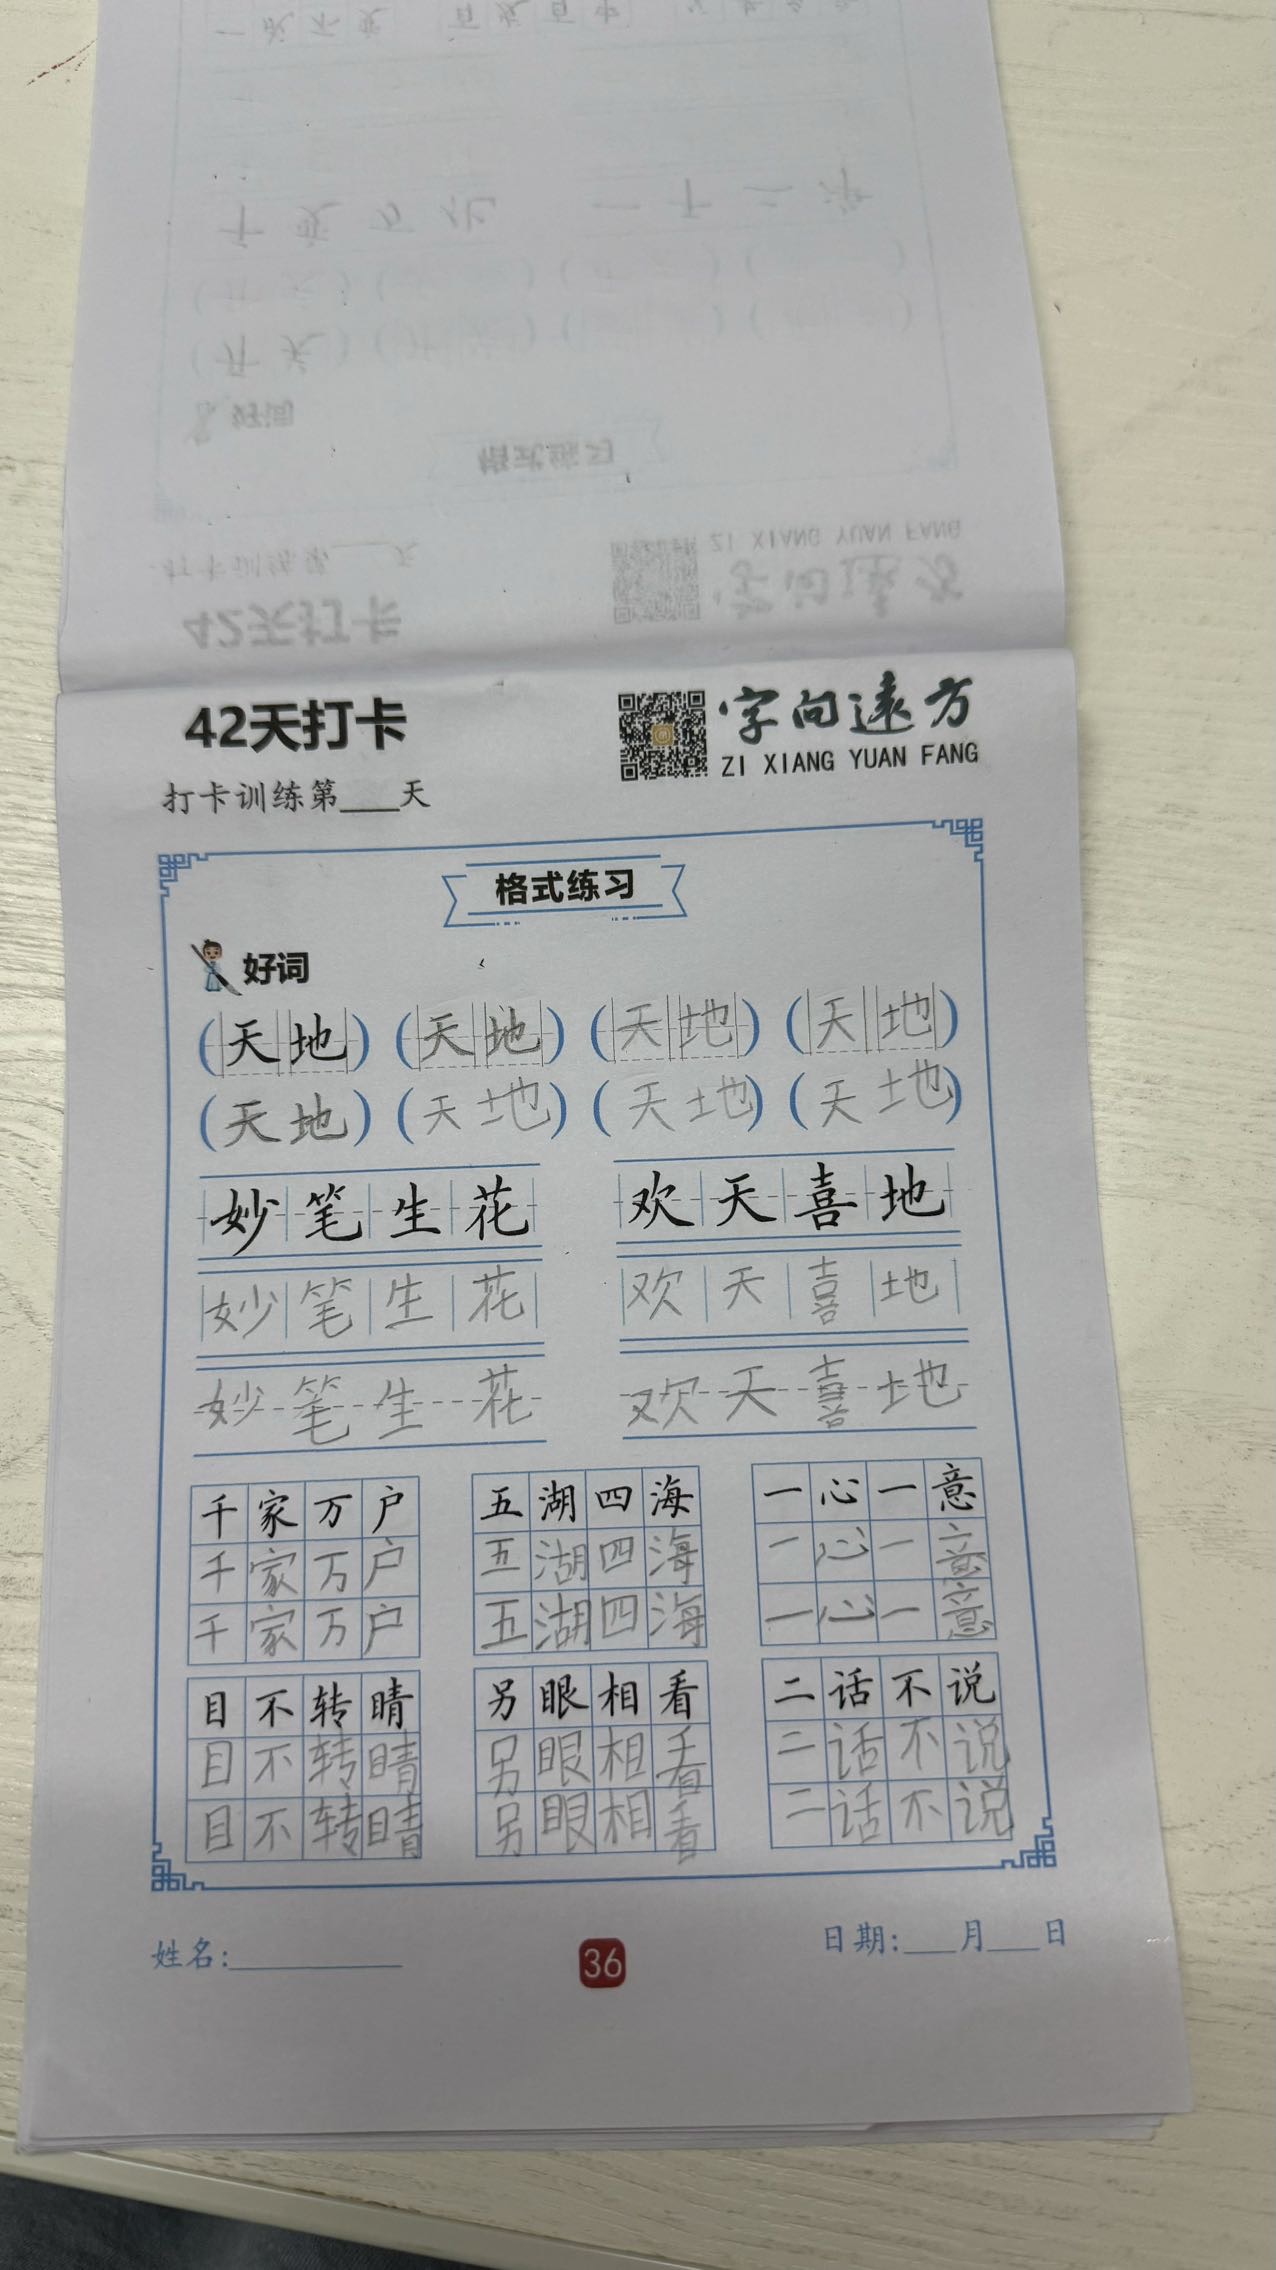 42天打卡
字向遠方
ZI XIANG YUAN FANG
打卡训练第___天
格式练习
好词
(天地) (天地) (天地) (天地)
(天地) (天地) (天地) (天地)
妙笔生花 欢天喜地
妙笔生花 欢天喜地
妙笔生花 欢天喜地
千家万户 五湖四海 一心一意
千家万户 五湖四海 一心一意
千家万户 五湖四海 一心一意
目不转睛 另眼相看 二话不说
目不转睛 另眼相看 二话不说
目不转睛 另眼相看 二话不说
姓名:__________ 36 日期:___月___日